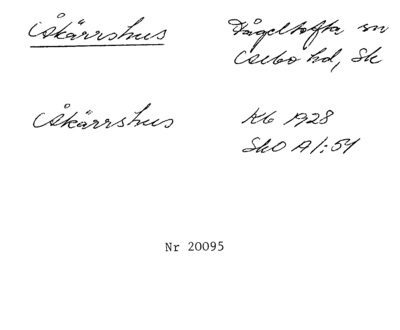 Åkärrshus
Fågeltofta sn
Albo hd, Sk
Åkärrshus
Kb 1928
SkO A1:54
Nr 20095